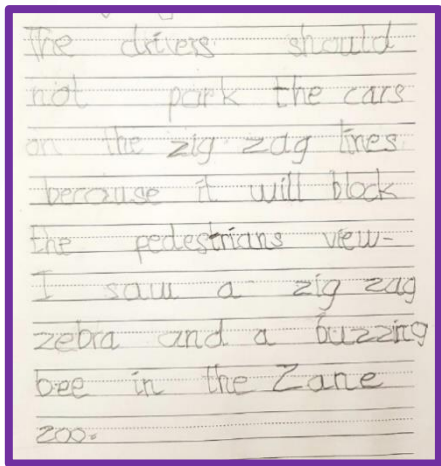 The drivers should
not park the cars
on the zig zag lines
because it will block
the pedestrians view.
I saw a zig zag
zebra and a buzzing
bee in the Zane
zoo.